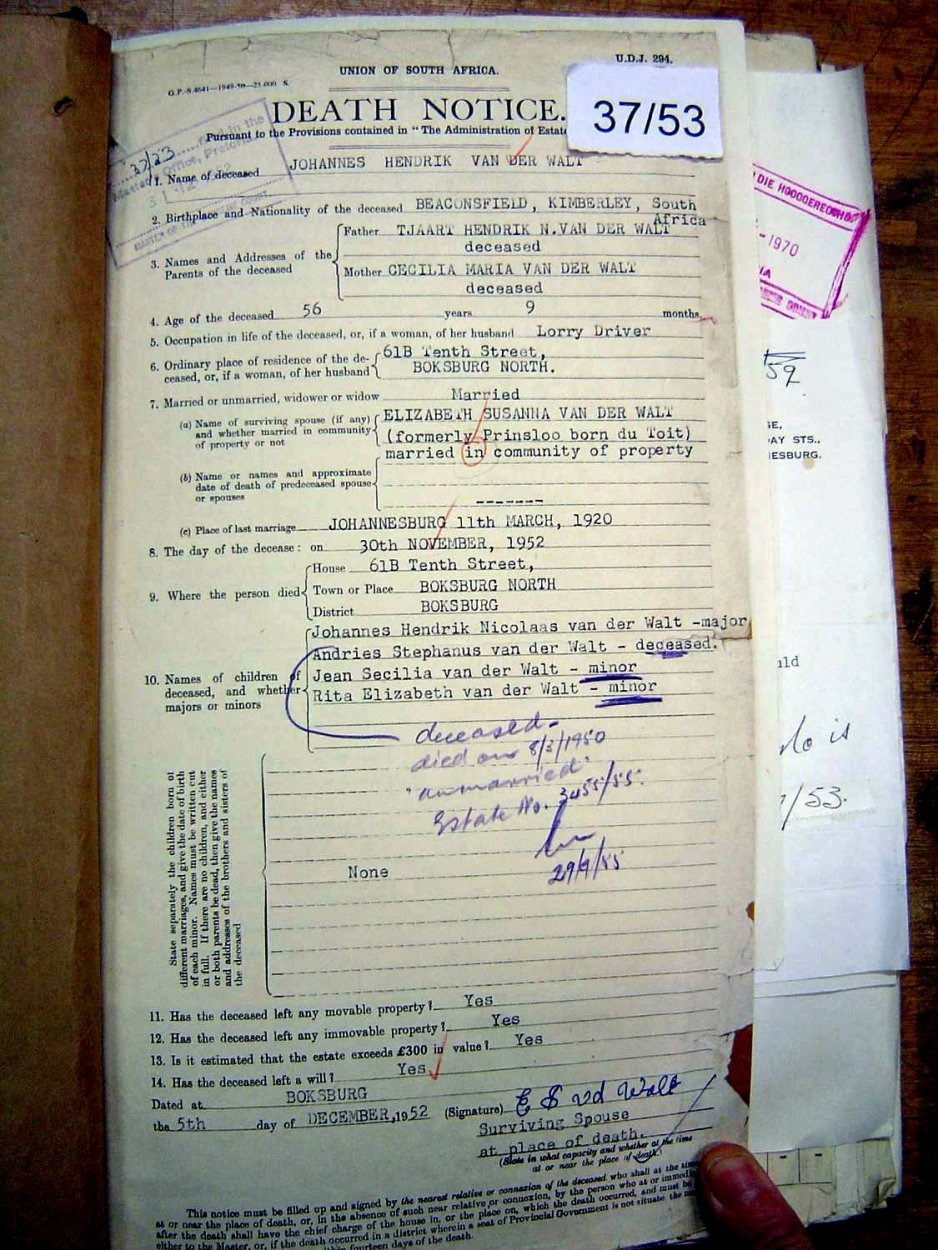 U.D.J. 294.
UNION OF SOUTH AFRICA.
G.P.-S.4641—1949-50—25,000 S.
DEATH NOTICE.
37/53
Pursuant to the Provisions contained in "The Administration of Estate
37/53
Master's Office, Pretoria
1. Name of deceased JOHANNES HENDRIK VAN DER WALT
2. Birthplace and Nationality of the deceased BEACONSFIELD, KIMBERLEY, South Africa
3. Names and Addresses of the Parents of the deceased
Father TJAART HENDRIK N.VAN DER WALT
deceased
Mother CECILIA MARIA VAN DER WALT
deceased
4. Age of the deceased 56 years 9 months
5. Occupation in life of the deceased, or, if a woman, of her husband Lorry Driver
6. Ordinary place of residence of the de- 61B Tenth Street,
ceased, or, if a woman, of her husband BOKSBURG NORTH.
7. Married or unmarried, widower or widow Married
(a) Name of surviving spouse (if any) ELIZABETH SUSANNA VAN DER WALT
and whether married in community (formerly Prinsloo born du Toit)
of property or not married in community of property
(b) Name or names and approximate
date of death of predeceased spouse
or spouses -------
(c) Place of last marriage JOHANNESBURG 11th MARCH, 1920
8. The day of the decease: on 30th NOVEMBER, 1952
9. Where the person died
House 61B Tenth Street,
Town or Place BOKSBURG NORTH
District BOKSBURG
10. Names of children of
deceased, and whether
majors or minors
Johannes Hendrik Nicolaas van der Walt -major
Andries Stephanus van der Walt - deceased.
Jean Secilia van der Walt - minor
Rita Elizabeth van der Walt - minor
deceased-
died on 8/3/1950
"unmarried"
Estate No. 3455/55.
29/9/55
State separately the children born of
different marriages, and give the date of birth
of each minor. Names must be written out
in full. If there are no children, and either
or both parents be dead, then give the names
and addresses of the brothers and sisters of
the deceased
None
11. Has the deceased left any movable property? Yes
12. Has the deceased left any immovable property? Yes
13. Is it estimated that the estate exceeds £300 in value? Yes
14. Has the deceased left a will? Yes
Dated at BOKSBURG
the 5th day of DECEMBER, 1952 (Signature) E S vd Walt
Surviving Spouse
at place of death.
(State in what capacity and whether at the time
at or near the place of death.)
This notice must be filled up and signed by the nearest relative or connexion of the deceased who shall at the time
at or near the place of death, or, in the absence of such near relative or connexion, by the person who at or immedi
after the death shall have the chief charge of the house in, or the place on, which the death occurred, and must be
either to the Master, or, if the death occurred in a district wherein a seat of Provincial Government is not situate the
fourteen days of the death.
DIE HOOGGEREGSHOF
-1970
59
SE,
AY STS.,
ESBURG.
uld
is
/53.